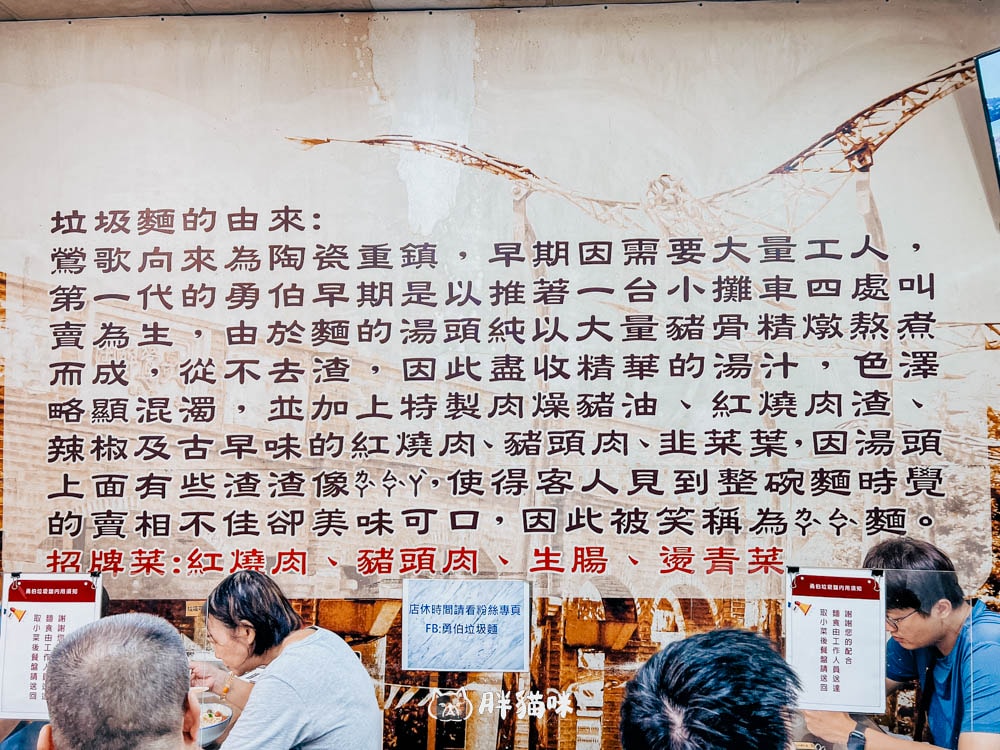 垃圾麵的由來:
鶯歌向來為陶瓷重鎮，早期因需要大量工人，
第一代的勇伯早期是以推著一台小攤車四處叫
賣為生，由於麵的湯頭純以大量豬骨精燉熬煮
而成，從不去渣，因此盡收精華的湯汁，色澤
略顯混濁，並加上特製肉燥豬油、紅燒肉渣、
辣椒及古早味的紅燒肉、豬頭肉、韭菜葉，因湯頭
上面有些渣渣像ㄌㄅㄙㄚ，使得客人見到整碗麵時覺
的賣相不佳卻美味可口，因此被笑稱為ㄌㄅㄙ麵。
招牌菜:紅燒肉、豬頭肉、生腸、燙青菜
勇伯垃圾麵內用須知
謝謝您的配合
麵食由工作人員送達
取小菜後餐盤請送回
店休時間請看粉絲專頁
FB:勇伯垃圾麵
勇伯垃圾麵內用須知
謝謝您的配合
麵食由工作人員送達
取小菜後餐盤請送回
胖貓咪